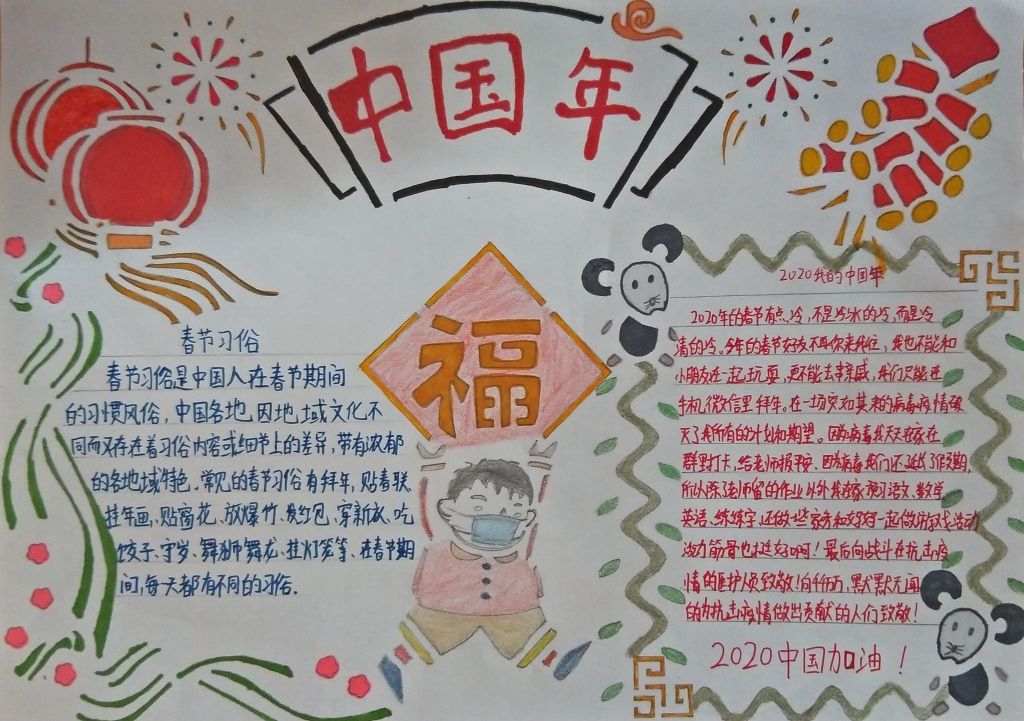 中国年
福
春节习俗
春节习俗是中国人在春节期间
的习惯风俗，中国各地，因地域文化不
同而又存在着习俗内容或细节上的差异，带有浓郁
的各地域特色。常见的春节习俗有拜年，贴春联
挂年画，贴窗花、放爆竹、发红包、穿新衣、吃
饺子、守岁、舞狮舞龙、挂灯笼等、在春节期
间，每天都有不同的习俗。
2020我的中国年
2020年的春节有点冷，不是冷水的冷，而是冷
清的冷。今年的春节好友不再你来我往，我也不能和
小朋友在一起玩耍，更不能去串亲戚，我们只能在
手机微信里拜年。在一场突如其来的病毒病情破
灭了我所有的计划和期望。因为病毒我天天在家在
群里打卡，给老师报平安。因为病毒我们还延长了假期，
所以除了老师留的作业以外我在家预习语文、数学
英语、练练字，还做些家务和妈妈一起做游戏活动
活力筋骨也挺好啊！最后向战斗在抗击疫
情的医护人员致敬！向千千万万，默默无闻
的为抗击疫情做出贡献的人们致敬！
2020中国加油！